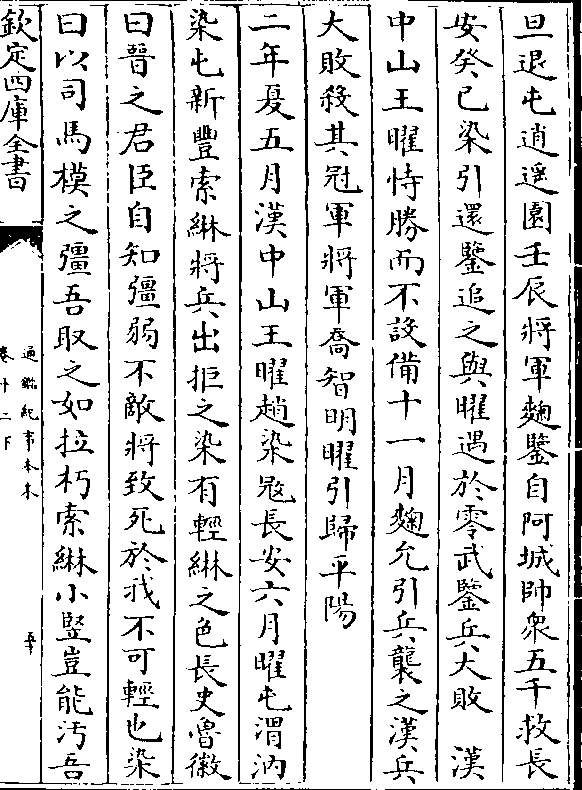 旦退屯逍遙園壬辰將軍麴鑒自阿城帥衆五千救長
安癸巳染引還鑒追之與曜遇於零武鑒兵大敗　漢
中山王曜恃勝而不設備十一月麴允引兵襲之漢兵
大敗殺其冠軍將軍喬智明曜引歸平陽
二年夏五月漢中山王曜趙染寇長安六月曜屯渭汭
染屯新豐索綝將兵出拒之染有輕綝之色長史魯徽
曰晉之君臣自知彊弱不敵將致死於我不可輕也染
曰以司馬模之彊吾取之如拉朽索綝小豎豈能汚吾
欽定四庫全書
通鑑紀事本末
卷十二下
五十